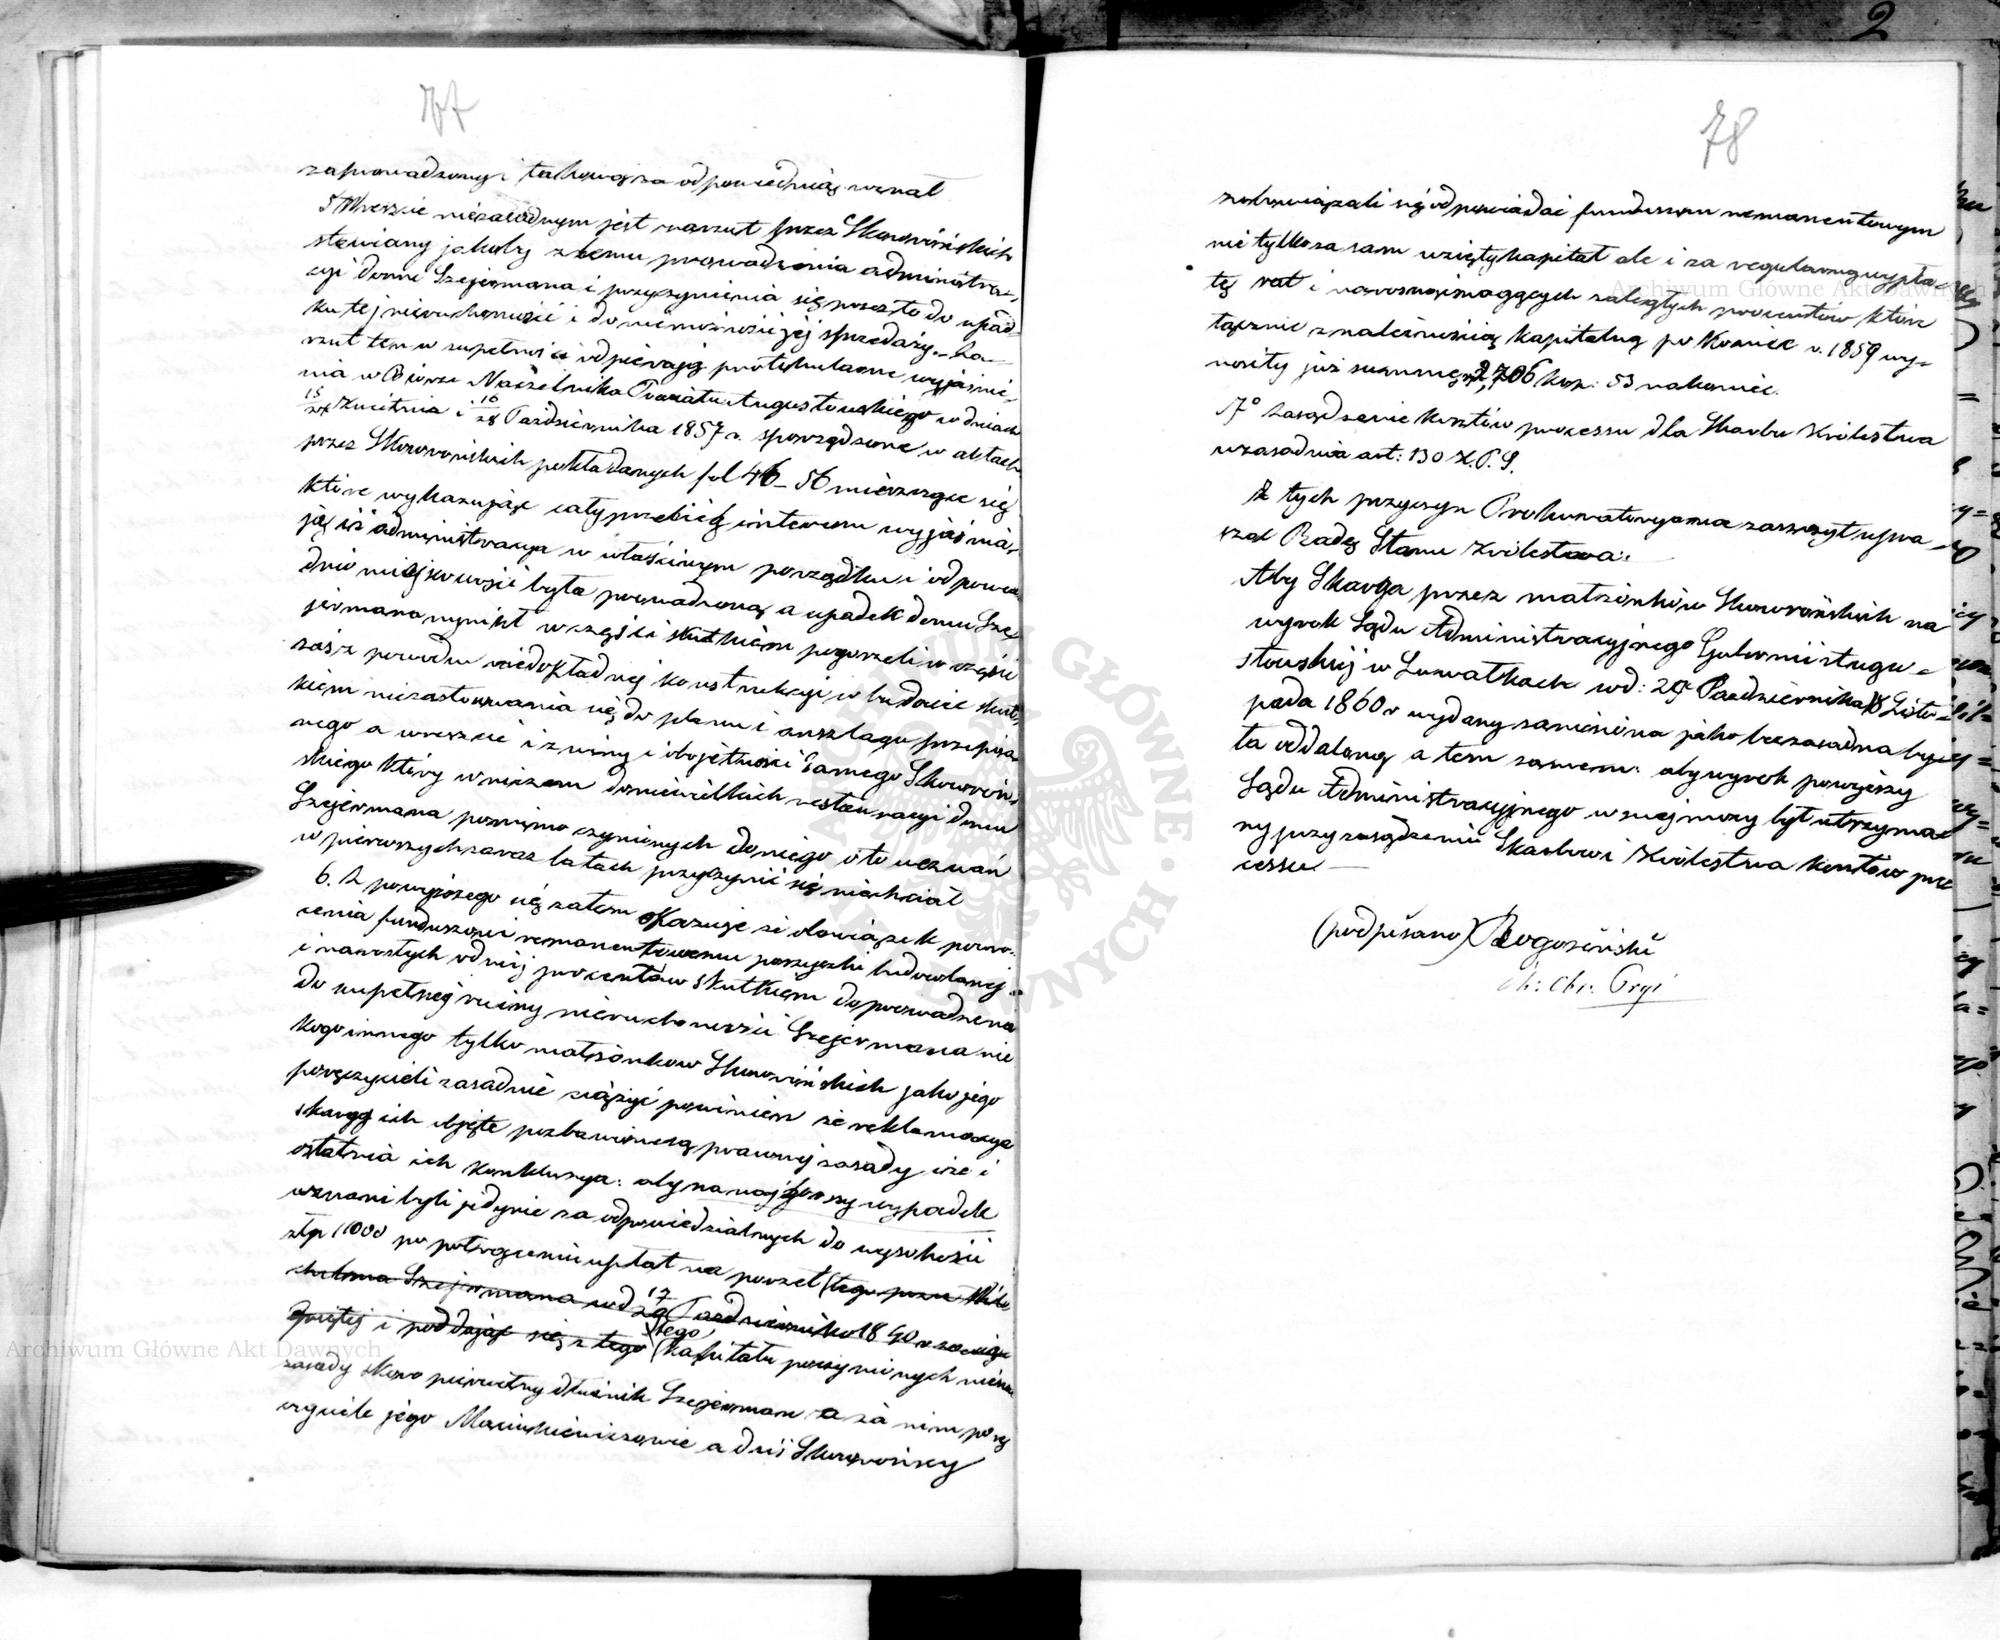 2
77
zaprowadzony i takową za odpowiednią uznał
5 Wreszcie niezasadnym jest zarzut przez Skowrońskich
stawiany jakoby z temu prowadzenia administra-
cyi domu Szejermana i przyczynienia się przeszło do upad-
ku tej nieruchomości i do niemożności jej sprzedaży. Za-
rzut ten w zupełności odpierają protokularne wyjaśnie-
nia w Biórze Naczelnika Powiatu Augustowskiego w dniach
15/27 Kwietnia i 16/28 Października 1857 r. sporządzone w aktach
przez Skowrońskich pokładanych fol 46-56 mieszczące się
które wykazując cały przebieg interesu wyjaśnia-
ją iż administracya w właściwym porządku i odpowie
dnio miejscowości była prowadzoną a upadek domu Sze-
jermana wynikł w części skutkiem pogorzeli w części
zaś z powodu niedokładnej konstrukcyi w budowie skut-
kiem niezastosowania się do planu i anszlagu przepisa-
nego a wreszcie i z winy i obojętności samego Skowroń-
skiego który w niczem do niewielkich restauracyi domu
Szejermana pomimo czynionych do niego o to wezwań
w pierwszych zaraz latach przyczynić się niechciał
6. Z powyższego się zatem okazuje że obowiązek powró-
cenia funduszowi remanentowemu pożyczki budowlanej
i narosłych od niej procentów skutkiem doprowadzenia
do zupełnej ruiny nieruchomości Szejermana nie
kogo innego tylko małżonków Skowrońskich jako jego
poręczycieli zasadnie ciążyć powinien że reklamacya
skargą ich objęta pozbawioną są prawnej zasady iże i
ostatnia ich konkluzya: aby na najgorszy wypadek
uznani byli jedynie za odpowiedzialnych do wysokości
złp 1000 po potrąceniu upłat na poczet (tego przez Mi
chelma Szejermana wd 17/29 Października 1840 r. zaciąg
niętej i poddając się z tego (tego) kapitału poczynionych niema
zasady skoro pierwotny dłużnik Szejerman a za nim porę
czyciele jego Marcinkiewiczowie a dziś Skowrońscy
78
zobowiązali się odpowiadać funduszom remanentowym
nie tylko za sam wzięty kapitał ale i za regularną wypła-
tę rat i narosnąć mogących zaległych procentów które
łącznie z należnością kapitalną po koniec r. 1859 wy-
nosiły już summę rs. 2,706 kop: 53 nakoniec.
7° Zasądzenie kosztów processu dla Skarbu Królestwa
uzasadnia art: 130 K.P.S.
Z tych przyczyn Prokuratorya ma zaszczyt upra-
szać Radę Stanu Królestwa:
Aby Skarga przez małżonków Skowrońskich na
wyrok Sądu Administracyjnego Gubernii Augu-
stowskiej w Suwałkach wd: 29 Października/8 Listo-
pada 1860 r wydany zaniesiona jako bezzasadna by-
ła oddaloną a tem samem: aby wyrok powyższy
Sądu Administracyjnego w swej mocy był utrzyma
ny przy zasądzeniu Skarbowi Królestwa kosztów pro
cessu —
(podpisano) Rogoziński